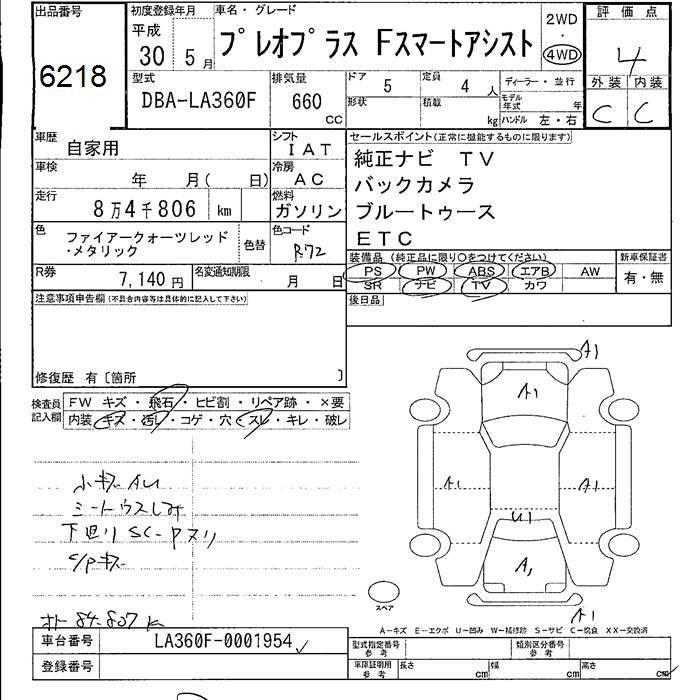 出品番号
6218
初度登録年月
平成
30 5月
車名・グレード
プレオプラス Fスマートアシスト
2WD
・
4WD
評価点
4
外装 内装
C C
型式
DBA-LA360F
排気量
660
cc
ドア 5
定員 4人
形状
積載 kg
ディーラー・並行
モデル年式 年
ハンドル 左・右
車歴 自家用
シフト IAT
車検 年 月( 日)
冷房 AC
走行 8万4千806 km
燃料 ガソリン
色 ファイアークォーツレッド
・メタリック
色替
色コード R72
R券 7,140円
名変通知期限 月 日
セールスポイント(正常に機能するものに限ります)
純正ナビ TV
バックカメラ
ブルートゥース
ETC
装備品(純正品に限り○をつけてください)
PS PW ABS エアB AW
SR ナビ TV カワ
新車保証書
有・無
後日品
注意事項申告欄(不具合内容等は具体的に記入して下さい)
修復歴 有〔箇所 〕
検査員記入欄
FW キズ・飛石・ヒビ割・リペア跡・×要
内装 キズ・汚レ・コゲ・穴・スレ・キレ・破レ
小キズAU
シートウスしみ
下廻り SC-Pヌリ
C/Pキズ
84-807k
A1
A1
A1
A1
U1
A1
A1
スペア
A-キズ E-エクボ U-凹み W-補修跡 S-サビ C-腐食 XX-交換済
車台番号 LA360F-0001954
登録番号
型式指定番号参考
類別区分番号参考
車庫証明用参考
長さ cm
幅 cm
高さ cm